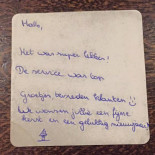 Hallo,
Het was super lekker!
De service was top
Groetjes tevreden klanten
We wensen jullie een fijne
kerst en een gelukkig nieuwjaar!